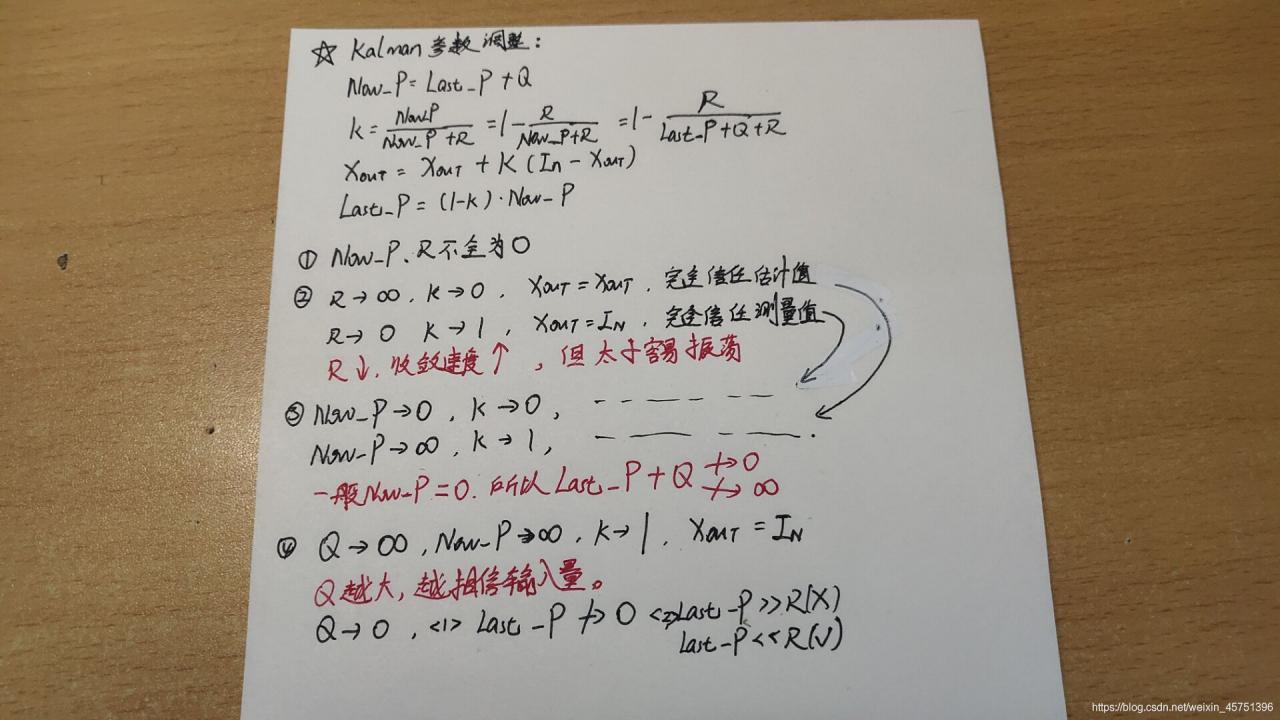 ☆ Kalman 参数调整：
Now_P = Last_P + Q
K = Now_P / (Now_P + R) = 1 - R / (Now_P + R) = 1 - R / (Last_P + Q + R)
XOUT = XOUT + K (In - XOUT)
Last_P = (1-K)·Now_P
① Now_P、R不全为0
② R→∞, K→0, XOUT = XOUT, 完全信任估计值
R→0 K→1, XOUT = IN, 完全信任测量值
R↓, 收敛速度↑, 但太小容易振荡
③ Now_P→0, K→0, -- —— -- -
Now_P→∞, K→1, — —— — —.
一般Now_P = 0. 所以 Last_P + Q ↛ 0
↛ ∞
④ Q→∞, Now_P→∞, K→1, XOUT = IN
Q越大，越相信输入量。
Q→0, <1> Last_P ↛ 0 <2> Last_P >> R(X)
Last_P << R(√)
https://blog.csdn.net/weixin_45751396